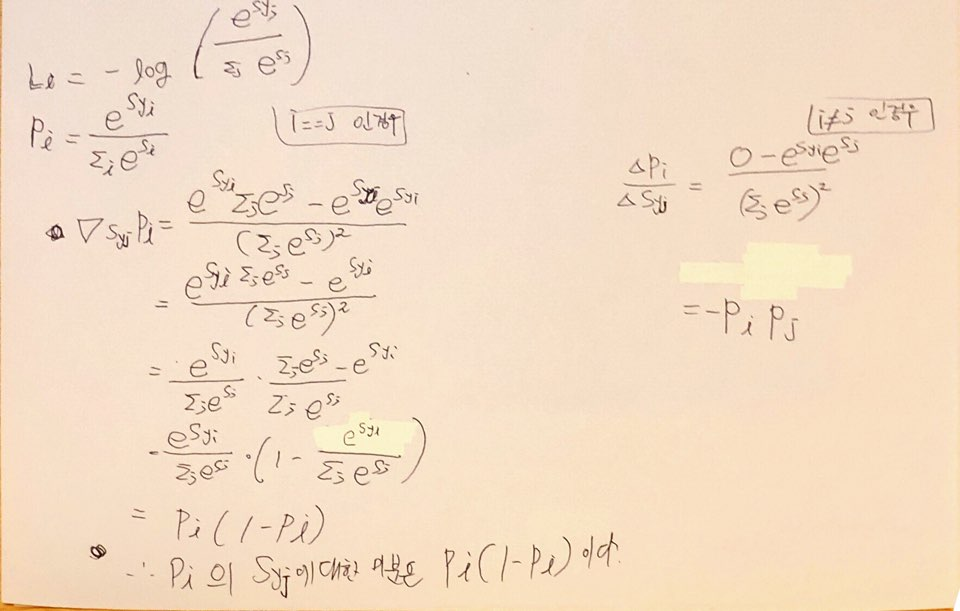 L_i = - log ( e^{S_{yj}} / Σ_j e^{S_j} )
P_i = e^{S_{yi}} / Σ_i e^{S_i}
i==j 인 경우
∇_{S_{yj}} P_i = ( e^{S_{yi}} Σ_j e^{S_j} - e^{S_{yi}} e^{S_{yi}} ) / (Σ_j e^{S_j})^2
= ( e^{S_{yi}} Σ_j e^{S_j} - e^{S_{yi}} ) / (Σ_j e^{S_j})^2
= e^{S_{yi}} / Σ_j e^{S_j} · ( Σ_j e^{S_j} - e^{S_{yi}} ) / Σ_j e^{S_j}
e^{S_{yi}} / Σ_j e^{S_j} · ( 1 - e^{S_{yi}} / Σ_j e^{S_j} )
= P_i ( 1 - P_i )
∴ P_i 의 S_{yj}에 대한 미분은 P_i ( 1 - P_i ) 이다.
i≠j 인 경우
ΔP_i / ΔS_{yj} = ( 0 - e^{S_{yi}} e^{S_j} ) / (Σ_j e^{S_j})^2
= -P_i P_j